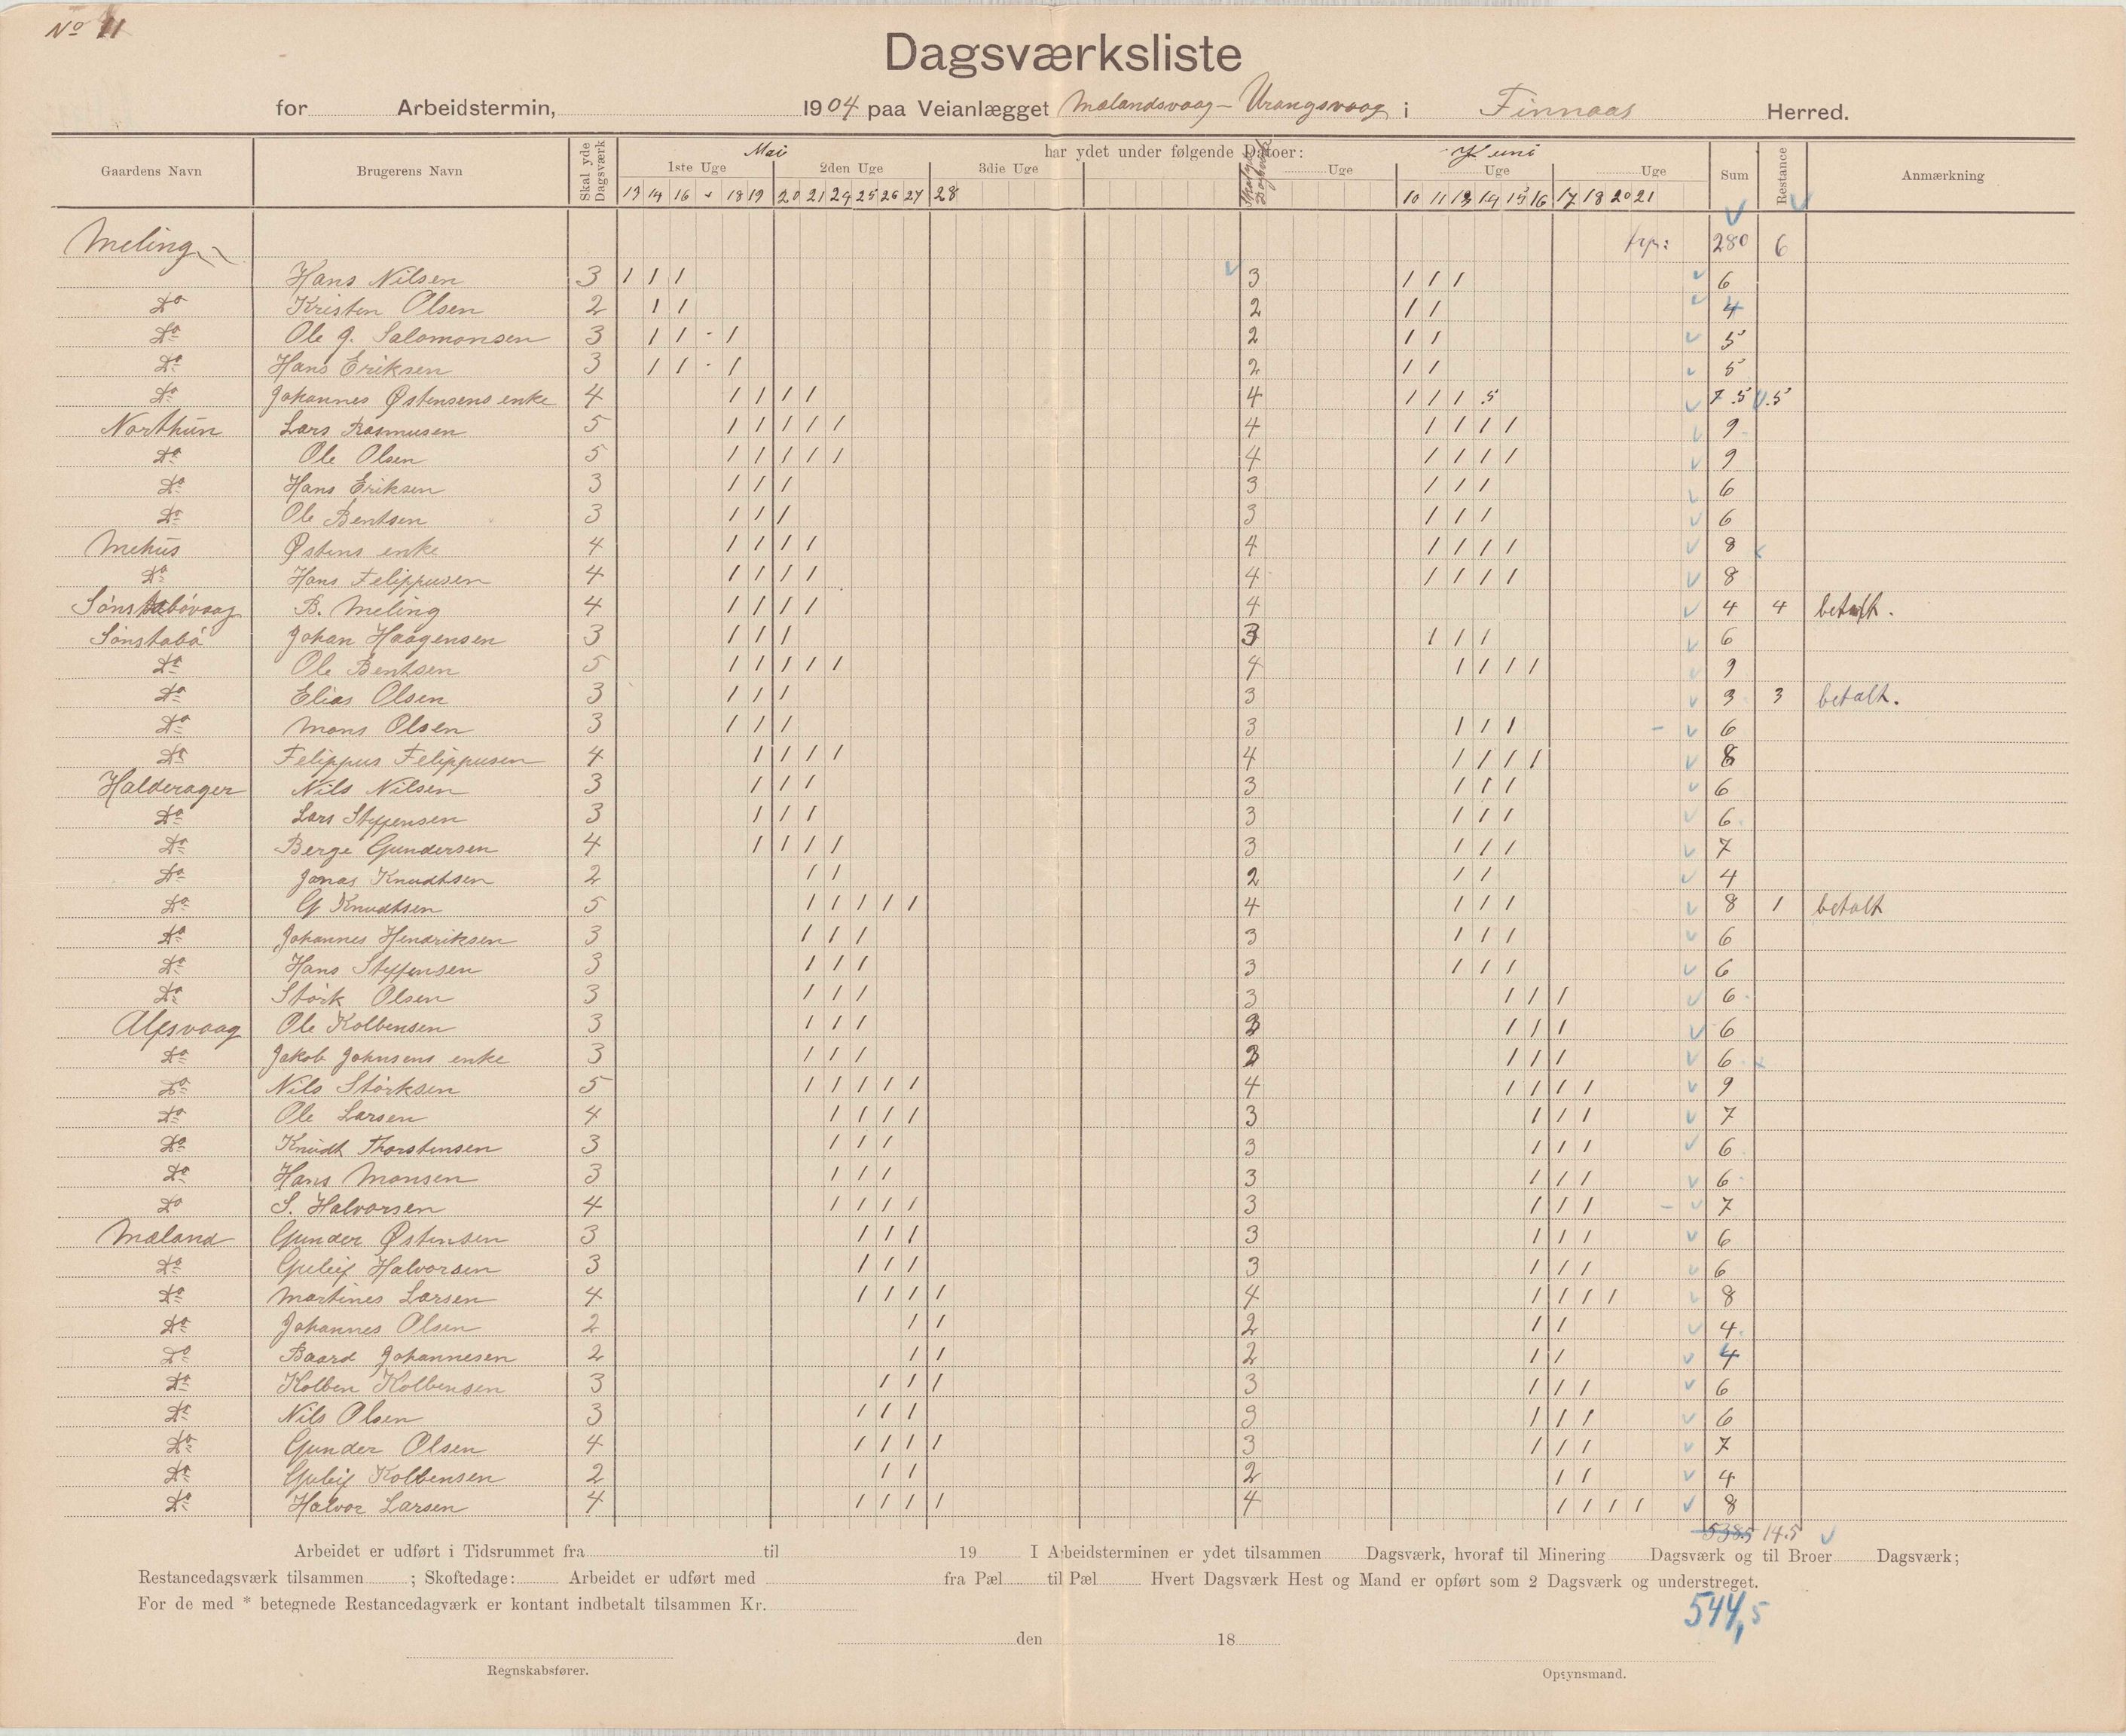 No 11
Dagsværksliste
for Arbeidstermin, 1904 paa Veianlægget Mælandsvaag - Urangsvaag i Finnaas Herred.
Gaardens Navn Brugerens Navn Skal yde Dagsværk har ydet under følgende Datoer: Sum Restance Anmærkning
Mai Juni
1ste Uge 2den Uge 3die Uge Uge Uge Uge
13 14 16 18 19 20 21 24 25 26 27 28 10 11 13 14 15 16 17 18 20 21
Meling frp: 280 6
Hans Nilsen 3 1 1 1 3 1 1 1 6
Do Kristen Olsen 2 1 1 2 1 1 4
Do Ole J. Salomonsen 3 1 1 - 1 2 1 1 5
Do Hans Eriksen 3 1 1 - 1 2 1 1 5
Do Johannes Østensens enke 4 1 1 1 1 4 1 1 1 .5 7.5 0.5
Northun Lars Rasmusen 5 1 1 1 1 1 4 1 1 1 1 9
Do Ole Olsen 5 1 1 1 1 1 4 1 1 1 1 9
Do Hans Eriksen 3 1 1 1 3 1 1 1 6
Do Ole Bentsen 3 1 1 1 3 1 1 1 6
Mehus Østens enke 4 1 1 1 1 4 1 1 1 1 8
Do Hans Felippusen 4 1 1 1 1 4 1 1 1 1 8
Sønstabøvaag B. Meling 4 1 1 1 1 4 4 4 betalt.
Sønstabø Johan Haagensen 3 1 1 1 3 1 1 1 6
Do Ole Bentsen 5 1 1 1 1 1 4 1 1 1 1 9
Do Elias Olsen 3 1 1 1 3 3 3 betalt.
Do Mons Olsen 3 1 1 1 3 1 1 1 6
Do Felippus Felippusen 4 1 1 1 1 4 1 1 1 1 8
Halderager Nils Nilsen 3 1 1 1 3 1 1 1 6
Do Lars Steffensen 3 1 1 1 3 1 1 1 6
Do Berge Gundersen 4 1 1 1 1 3 1 1 1 7
Do Jonas Knudtsen 2 1 1 2 1 1 4
Do G Knudtsen 5 1 1 1 1 1 4 1 1 1 8 1 betalt
Do Johannes Hendriksen 3 1 1 1 3 1 1 1 6
Do Hans Steffensen 3 1 1 1 3 1 1 1 6
Do Størk Olsen 3 1 1 1 3 1 1 1 6
Alfsvaag Ole Kolbensen 3 1 1 1 3 1 1 1 6
Do Jakob Johnsens enke 3 1 1 1 3 1 1 1 6
Do Nils Størksen 5 1 1 1 1 1 4 1 1 1 1 9
Do Ole Larsen 4 1 1 1 1 3 1 1 1 7
Do Knudt Thorstensen 3 1 1 1 3 1 1 1 6
Do Hans Monsen 3 1 1 1 3 1 1 1 6
Do S. Halvorsen 4 1 1 1 1 3 1 1 1 7
Mæland Gunder Østensen 3 1 1 1 3 1 1 1 6
Do Guleif Halvorsen 3 1 1 1 3 1 1 1 6
Do Martines Larsen 4 1 1 1 1 4 1 1 1 1 8
Do Johannes Olsen 2 1 1 2 1 1 4
Do Baard Johannesen 2 1 1 2 1 1 4
Do Kolben Kolbensen 3 1 1 1 3 1 1 1 6
Do Nils Olsen 3 1 1 1 3 1 1 1 6
Do Gunder Olsen 4 1 1 1 1 3 1 1 1 7
Do Guleif Kolbensen 2 1 1 2 1 1 4
Do Halvor Larsen 4 1 1 1 1 4 1 1 1 1 8
538.5 14.5
Arbeidet er udført i Tidsrummet fra til 19 I Arbeidsterminen er ydet tilsammen Dagsværk, hvoraf til Minering Dagsværk og til Broer Dagsværk;
Restancedagsværk tilsammen ; Skoftedage: Arbeidet er udført med fra Pæl til Pæl Hvert Dagsværk Hest og Mand er opført som 2 Dagsværk og understreget.
For de med * betegnede Restancedagværk er kontant indbetalt tilsammen Kr.
544,5
den 18
Regnskabsfører. Opsynsmand.